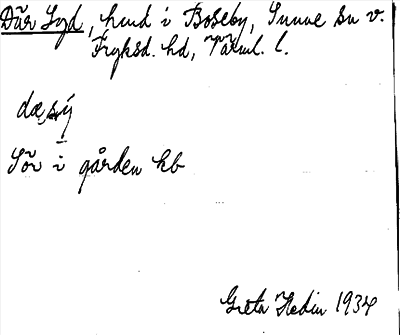 Där Syd, hmd i Boseby, Sunne sn v.
Fryksd. hd, Värml. l.
dæ, sy̅́
Sör i gården kb
Greta Hedin 1934